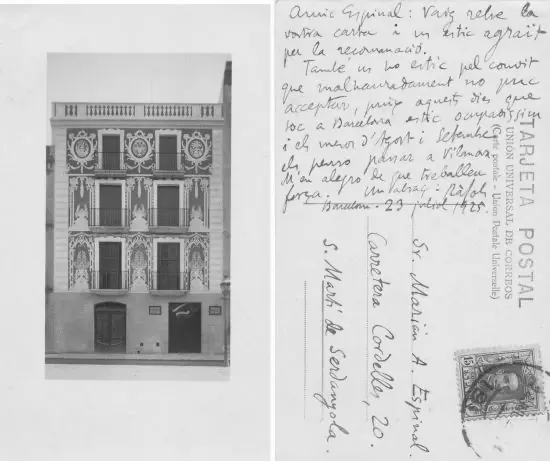 Amic Espinal: Vaig rebre la
vostra carta i us estic agraït
per la recomanació.
També us ho estic pel convit
que malhauradament no puc
acceptar, puig aquests dies que
soc a Barcelona estic ocupadíssim
i els mesos d'Agost i Setembre
els penso passar a Vilanova.
M'en alegro de que treballeu
força. Un abraç: Ràfols
Barcelona - 23 juliol 1925.
TARJETA POSTAL
UNION UNIVERSAL DE CORREOS
(Carte postale - Union Postale Universelle)
Sr. Marian A. Espinal.
Carretera Cordelles, 20.
S. Martí de Serdanyola.
15